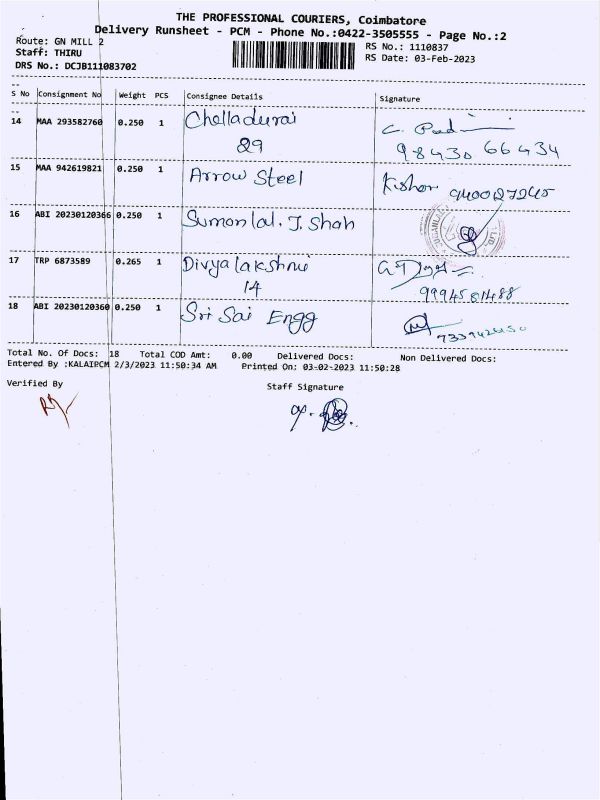 THE PROFESSIONAL COURIERS, Coimbatore
Delivery Runsheet - PCM - Phone No.:0422-3505555 - Page No.:2
Route: GN MILL 2
RS No.: 1110837
Staff: THIRU
RS Date: 03-Feb-2023
DRS No.: DCJB111083702
S No Consignment No Weight PCS Consignee Details Signature
14 MAA 293582760 0.250 1 Chelladurai
29
98430 66434
15 MAA 942619821 0.250 1 Arrow Steel Kishor
16 ABI 20230120366 0.250 1 Sumonlal. J. Shah
17 TRP 6873589 0.265 1 Divyalakshmi
14
18 ABI 20230120360 0.250 1 Sri Sai Engg
Total No. Of Docs: 18 Total COD Amt: 0.00 Delivered Docs: Non Delivered Docs:
Entered By :KALAIPCM 2/3/2023 11:50:34 AM Printed On: 03-02-2023 11:50:28
Verified By
Staff Signature